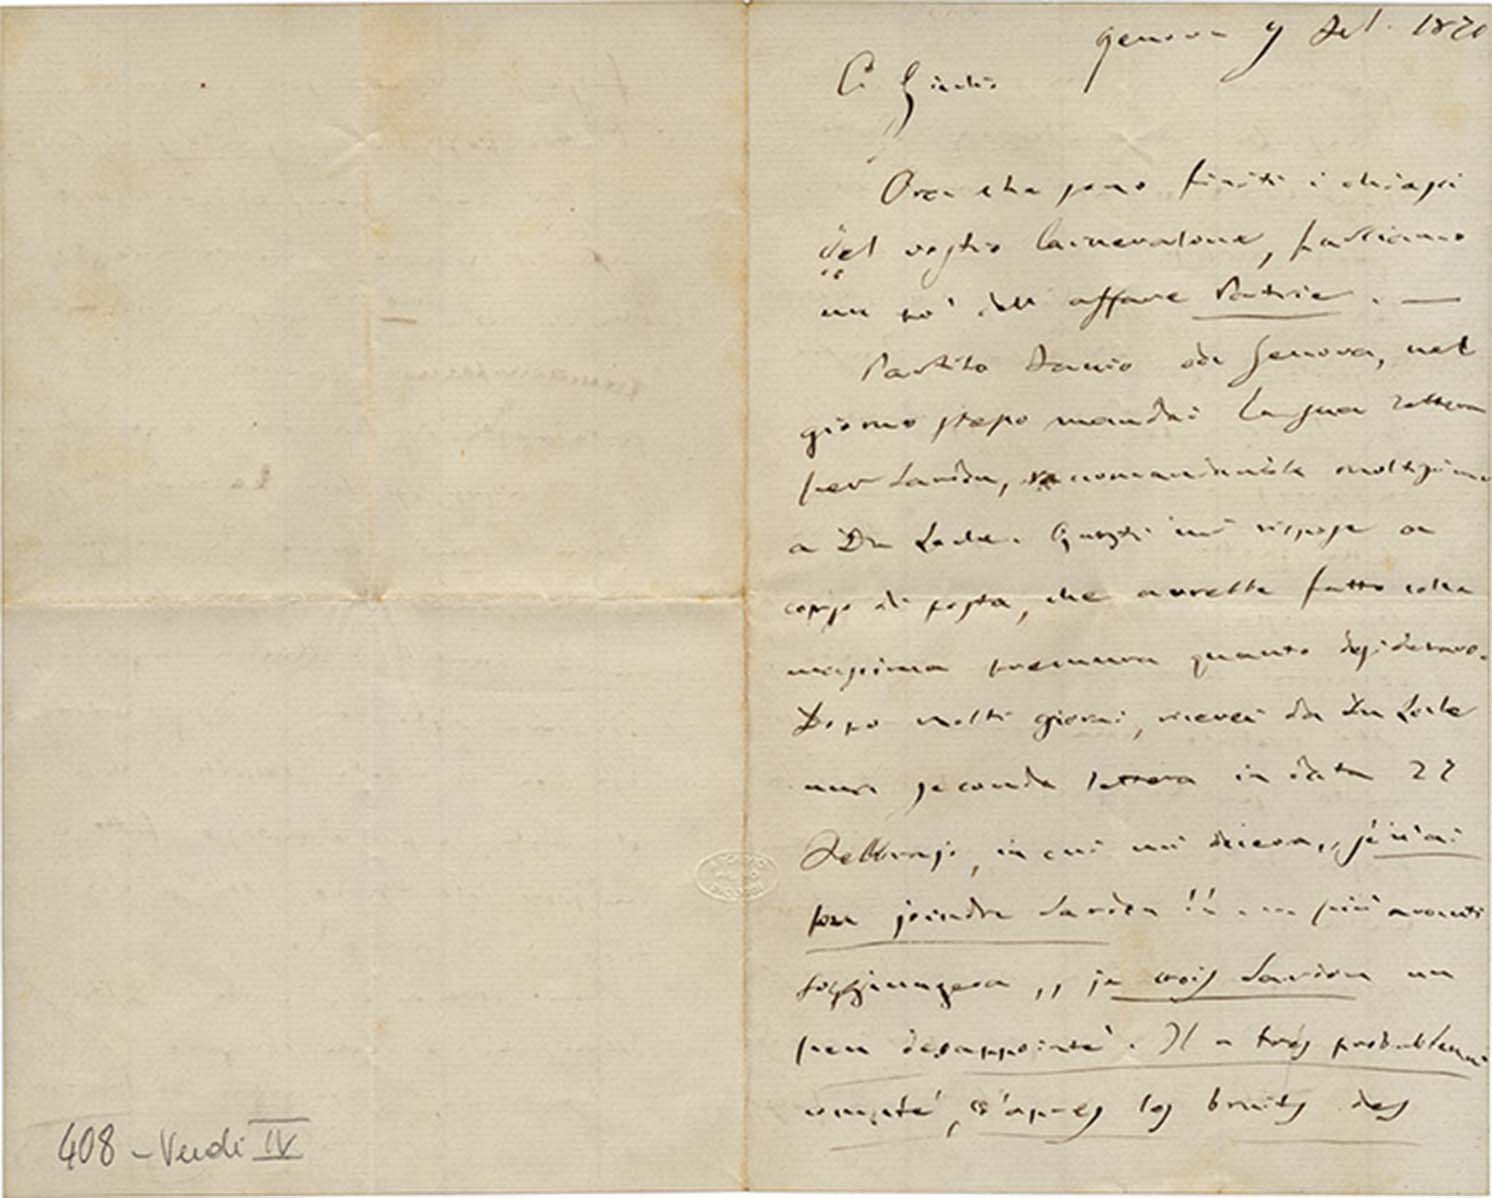 Genova 9 1870
C. Giulio
Ora che sono finiti i chiassi
del vostro Carnevalone, parliamo
un po' dell' affare Patrie. —
Partito da Genova, nel
giorno stesso mandai la sua lettera
per Sardou, raccomandandola moltissimo
a Du Locle. Questi mi rispose a
corso di posta, che avrebbe fatto colla
massima premura quanto desideravo.
Dopo molti giorni, ricevei da Du Locle
una seconda lettera in data 22
Febbrajo, in cui mi diceva „ je n'ai
pu joindre Sardou !! .... più avanti
soggiungeva „ je crois Sardou un
peu desappointé. Il a très probablement
compté, d'après les bruits des
408 – Verdi IV